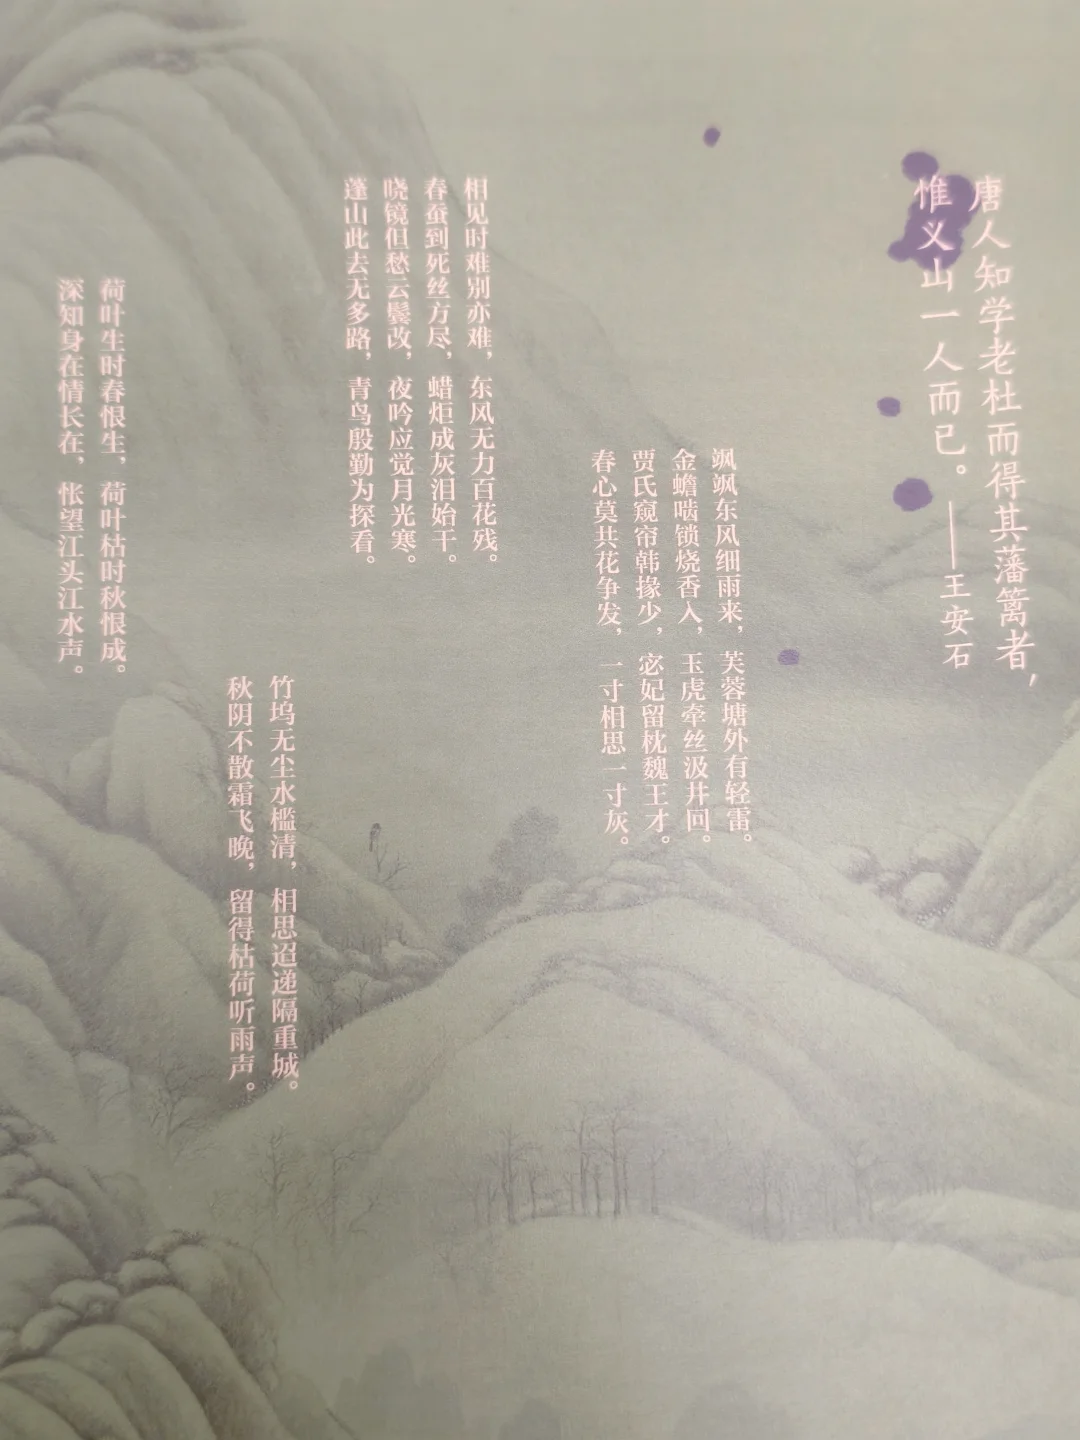 唐人知学老杜而得其藩篱者，
惟义山一人而已。——王安石
飒飒东风细雨来，芙蓉塘外有轻雷。
金蟾啮锁烧香入，玉虎牵丝汲井回。
贾氏窥帘韩掾少，宓妃留枕魏王才。
春心莫共花争发，一寸相思一寸灰。
相见时难别亦难，东风无力百花残。
春蚕到死丝方尽，蜡炬成灰泪始干。
晓镜但愁云鬓改，夜吟应觉月光寒。
蓬山此去无多路，青鸟殷勤为探看。
竹坞无尘水槛清，相思迢递隔重城。
秋阴不散霜飞晚，留得枯荷听雨声。
荷叶生时春恨生，荷叶枯时秋恨成。
深知身在情长在，怅望江头江水声。